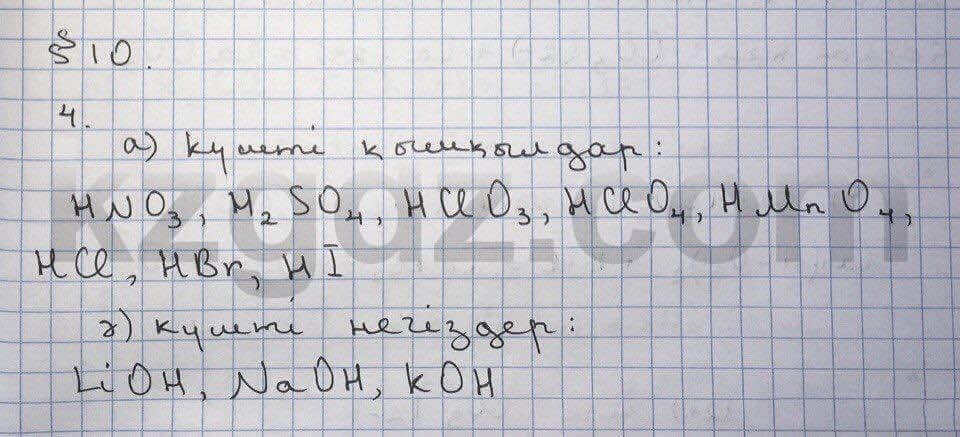 § 10.
4.
а) күшті қышқылдар:
HNO₃, H₂SO₄, HClO₃, HClO₄, HMnO₄,
HCl, HBr, HI
ә) күшті негіздер:
LiOH, NaOH, KOH
kzgdz.com